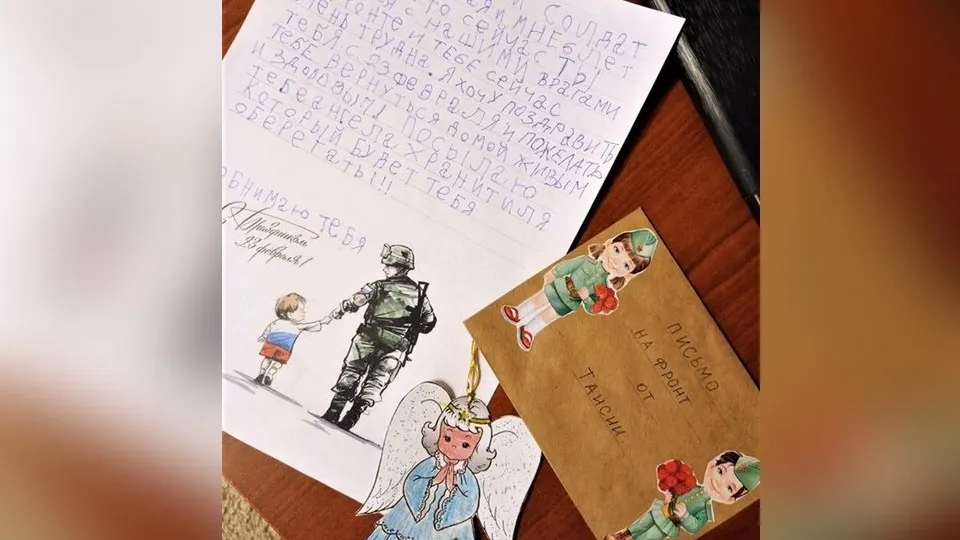 СОЛДАТ
И МНЕ 8 ЛЕТ
СЕЙЧАС ТЫ
С НАШИМИ ВРАГАМИ
И ТЕБЕ СЕЙЧАС
ТРУДНА. Я ХОЧУ ПОЗДРАВИТЬ
ТЕБЯ С 23 ФЕВРАЛЯ И ПОЖЕЛАТЬ
ТЕБЕ ВЕРНУТЬСЯ ДОМОЙ ЖИВЫМ
И ЗДОРОВЫМ! ПОСЫЛАЮ
ТЕБЕ АНГЕЛА ХРАНИТИЛЯ
КОТОРЫЙ БУДЕТ ТЕБЯ
ОБЕРЕГАТЬ!!!
ОБНИМАЮ ТЕБЯ
С Праздником
23 февраля!
ПИСЬМО
НА ФРОНТ
ОТ
ТАИСИИ